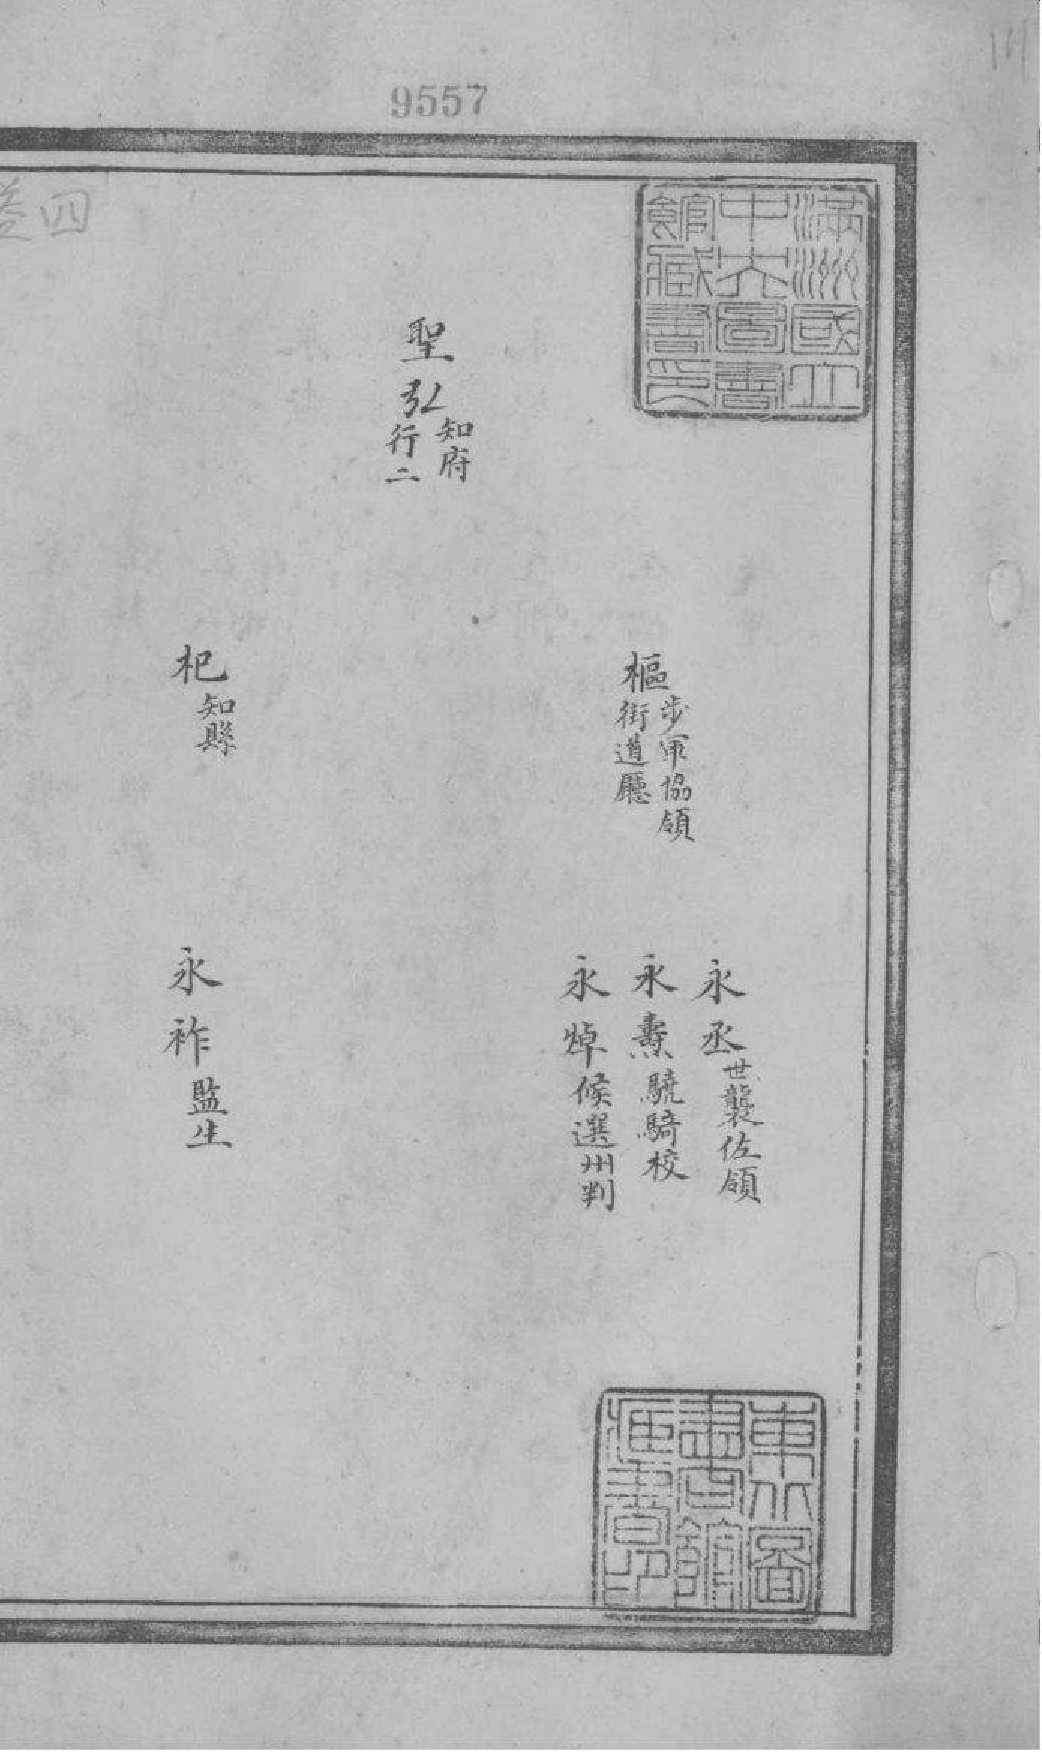 9557
卷四
滿洲國立
中央圖書
館藏書印
聖弘
知府
行二
樞
步軍協領
街道廳
杞
知縣
永丞世襲佐領
永燾驍騎校
永焯候選州判
永祚監生
東北圖
書館
藏書印